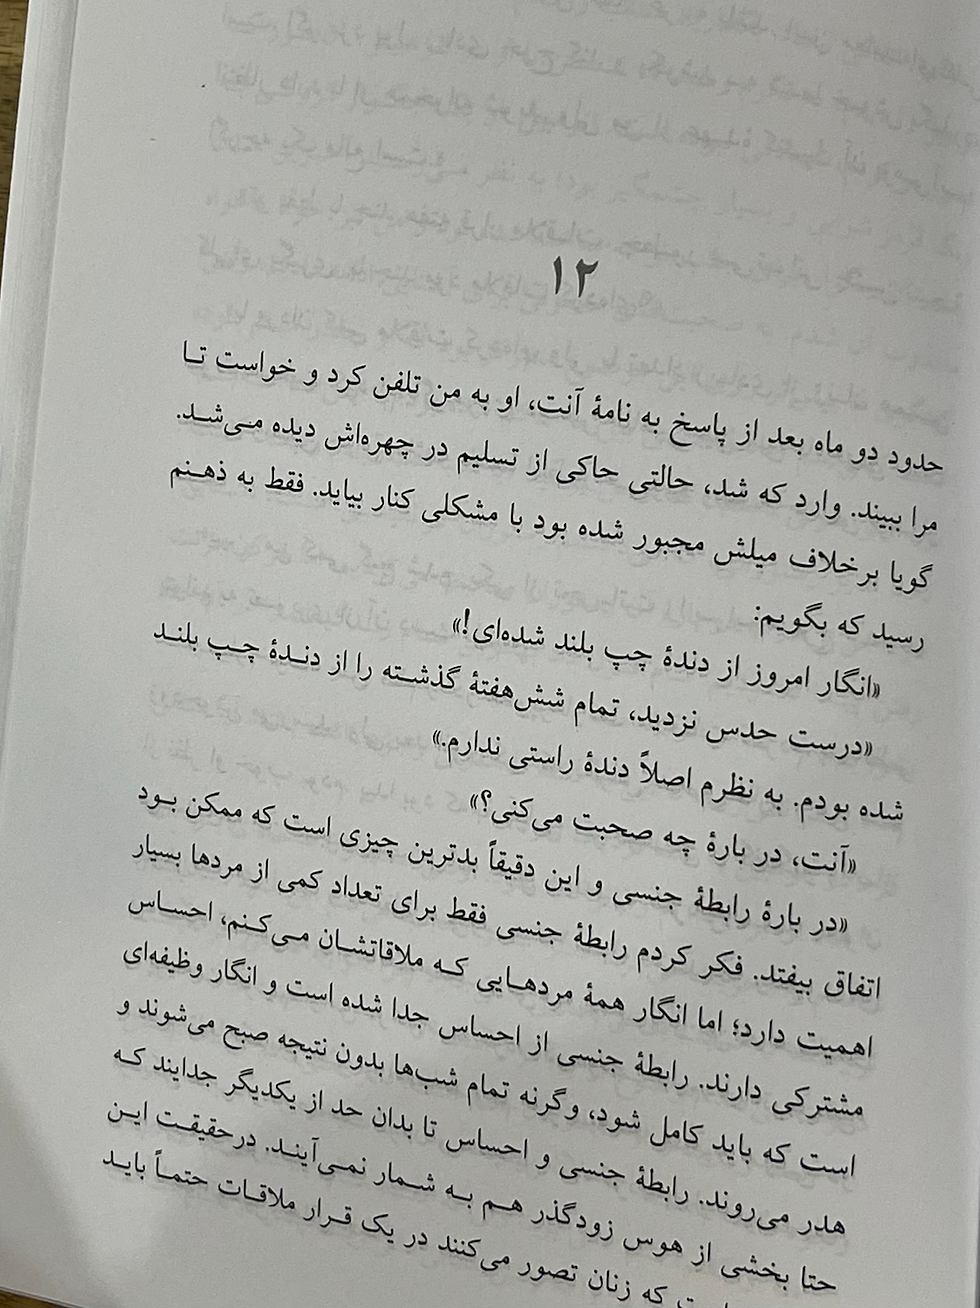 ۱۲
حدود دو ماه بعد از پاسخ به نامهٔ آنت، او به من تلفن کرد و خواست تا
مرا ببیند. وارد که شد، حالتی حاکی از تسلیم در چهره‌اش دیده می‌شد.
گویا برخلاف میلش مجبور شده بود با مشکلی کنار بیاید. فقط به ذهنم
رسید که بگویم:
«انگار امروز از دندهٔ چپ بلند شده‌ای!»
«درست حدس نزدید، تمام شش‌هفتهٔ گذشته را از دندهٔ چپ بلند
شده بودم. به نظرم اصلاً دندهٔ راستی ندارم.»
«آنت، در بارهٔ چه صحبت می‌کنی؟»
«در بارهٔ رابطهٔ جنسی و این دقیقاً بدترین چیزی است که ممکن بود
اتفاق بیفتد. فکر کردم رابطهٔ جنسی فقط برای تعداد کمی از مردها بسیار
اهمیت دارد؛ اما انگار همهٔ مردهایی که ملاقاتشان می‌کنم، احساس
مشترکی دارند. رابطهٔ جنسی از احساس جدا شده است و انگار وظیفه‌ای
است که باید کامل شود، وگرنه تمام شب‌ها بدون نتیجه صبح می‌شوند و
هدر می‌روند. رابطهٔ جنسی و احساس تا بدان حد از یکدیگر جدایند که
حتا بخشی از هوس زودگذر هم به شمار نمی‌آیند. درحقیقت این
که زنان تصور می‌کنند در یک قرار ملاقات حتماً باید